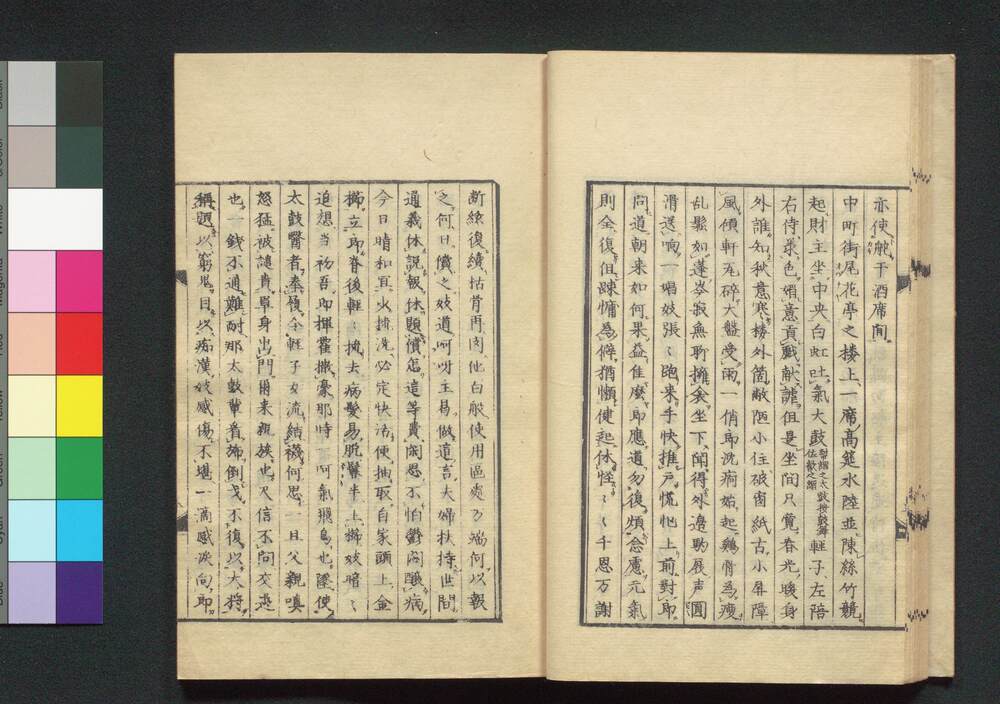 亦使能干酒席間
中町街尾花亭之楼上一席高筵水陸並陳絲竹競
起財主坐中央白虹吐氣大鼓 軽子左陪
右侍衆色媚意貢戯献謔但是坐間只覚春光暖身
外誰知秋意寒楼外箇敝陋小住破窗紙古小屏障
風傾軒瓦砕大盤受雨一俏郎洗痾始起鶏骨為痩
乱鬢如蓬岑寂無聊擁衾坐下聞得外邊跫屐声圓
滑道 一唱妓張〻跑来手快推戸慌忙上前對郎
問道朝来如何果益佳麼郎應道勿復煩念慮元氣
則全復但疎慵為癖猶懶健起休怪〻〻千恩万謝
断絃復續枯骨再肉他白般使用區處万端何以報
之何日償之妓道呵呀主易做這言夫婦扶持世間
通義休説報休題償怎這等費閑思不怕鬱悶釀病
今日晴和宜火掃洗必定快活便抽取自家頭上金
櫛立郎脊後軽〻梳去病髪易脱鬢半上櫛妓暗〻
追想当初吾郎揮霍撒豪那時 何氣飛鳥也墜使
太鼓醫者奉履令軽子女流結襪何思一旦父親嗔
怒猛被譴責單身出門爾来親族也不信不問交遊
也一銭不通難耐那太鼓輩看勢倒戈不復以大将
稱題以窮鬼目以痴漢妓感傷不堪一滴感涙向郎